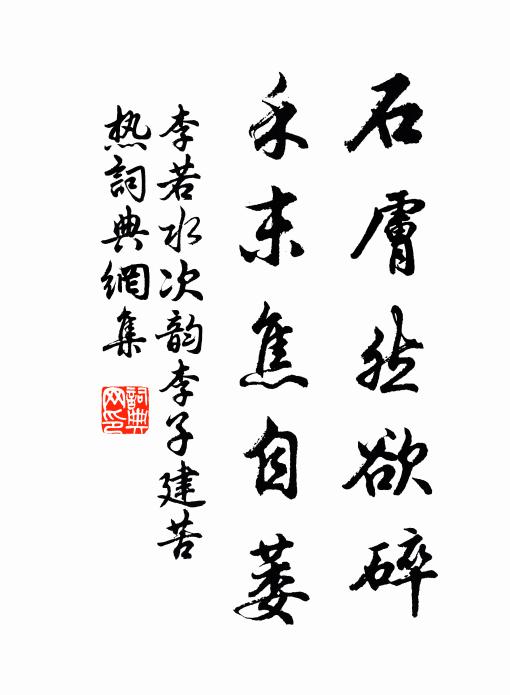 石膚然欲碎
禾末焦自萎
李若水次韵李子建苦
热詞典網集
詞典网印